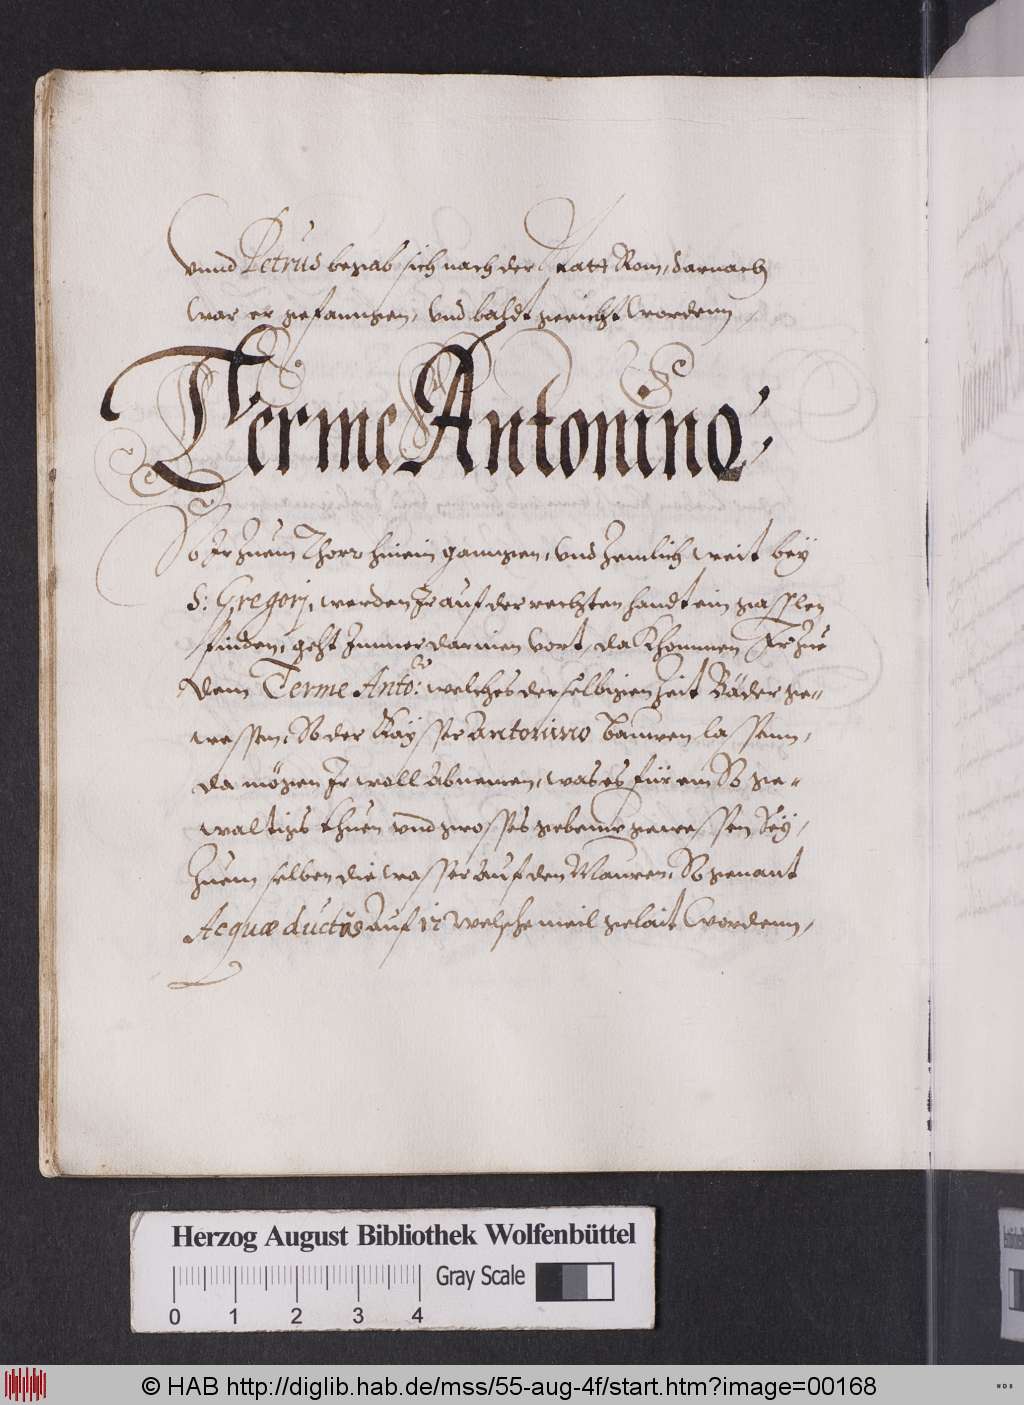 vnnd Petrus begab sich nach der Statt Rom, darnach
war er gefanngen, vnd baldt gericht worden
Terme Antonino,
So Ir Zuem Thorr hinein ganngen, vnd Zemlich weit bey
S: Gregorj, werden Ir auf der rechten handt ein gasslen
finden, geht Immer darinen vort, da Khommen Ir Zue
dem Terme Anto: welches derselbigen Zeit Bäder ge-
wessen, So der Kaysser Antonino Bauwen lassenn,
da mögen Ir woll abnemen, was es für ein So ge-
waltigs thuen vnd grosses gebeuw gewessen Sey,
Zuem selben die wasser auf den Mauren, So genant
Aequæ ductus auf 12 welsche meil gelait worden,
Herzog August Bibliothek Wolfenbüttel
Gray Scale
0 1 2 3 4
© HAB http://diglib.hab.de/mss/55-aug-4f/start.htm?image=00168